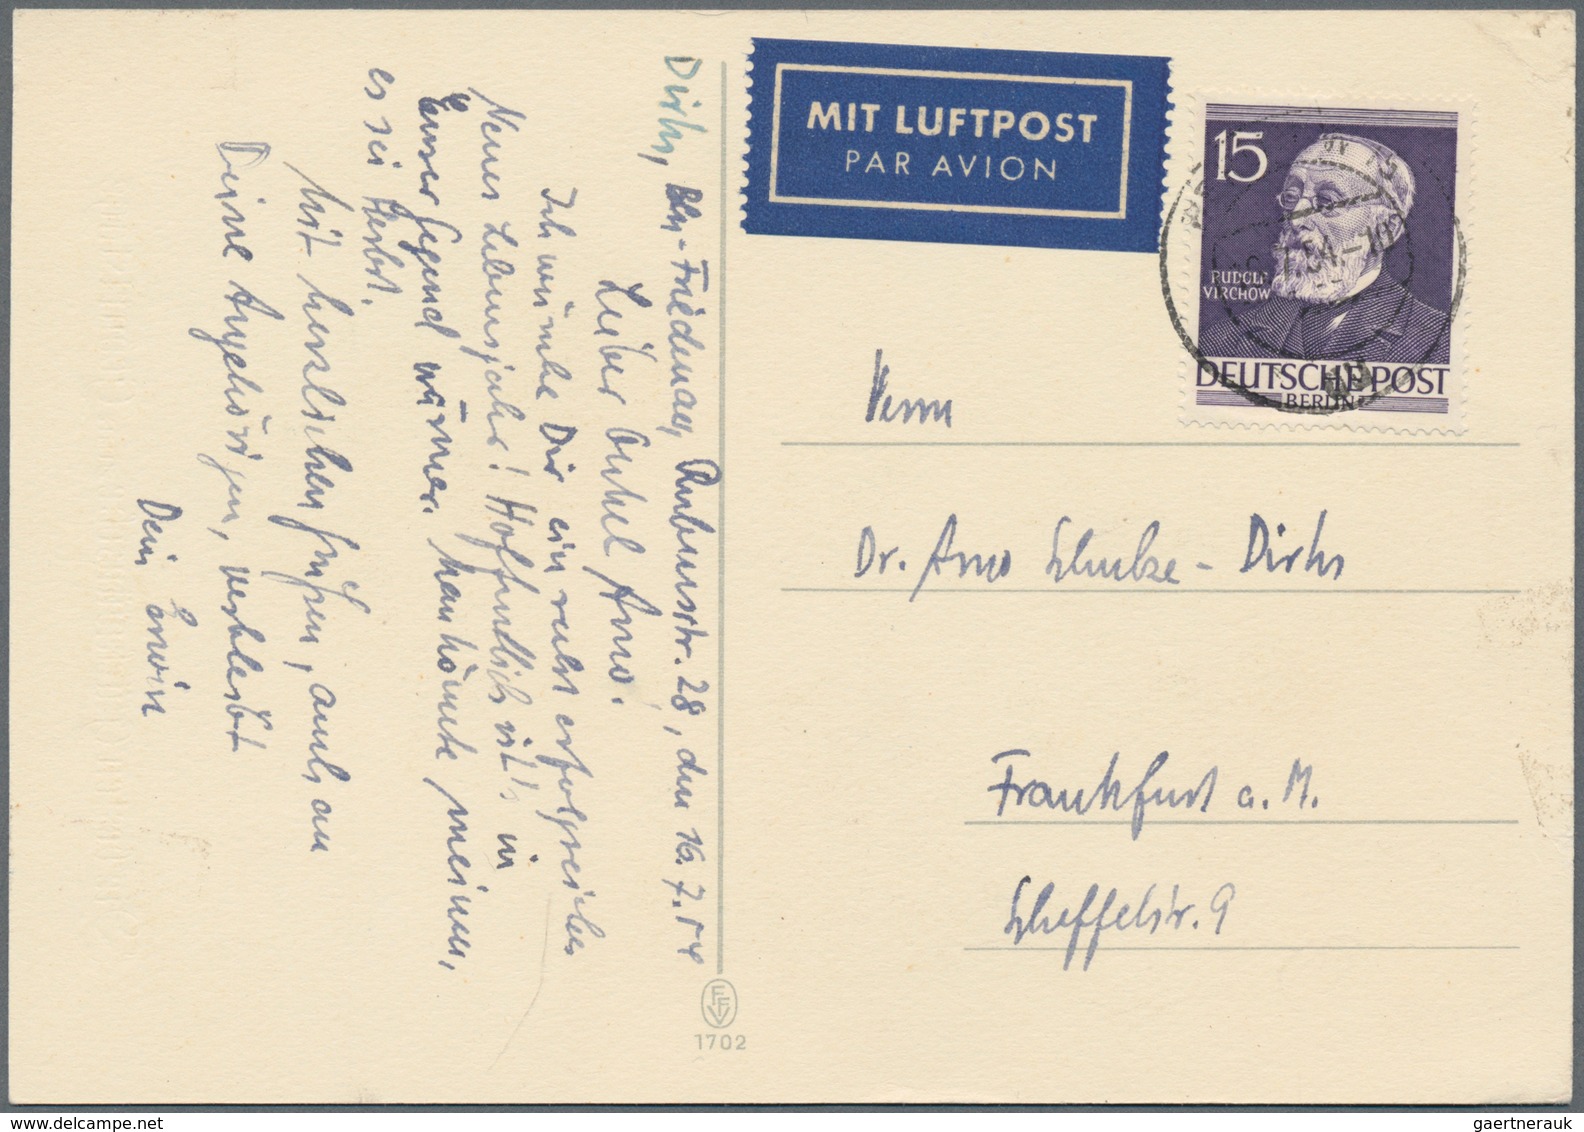 Dirks, Bln-Friedenau, Rubensstr. 28, den 16.7.54
Lieber Onkel Arno!
Ich wünsche Dir ein recht erfolgreiches
Neues Lebensjahr! Hoffentlich ist's in
Eurer Gegend wärmer. Man könnte meinen,
es sei Herbst.
Mit herzlichen Grüßen, auch an
Deine Angehörigen, verbleibt
Dein Erwin
FFV
1702
MIT LUFTPOST
PAR AVION
15
RUDOLF
VIRCHOW
DEUTSCHE POST
BERLIN
7.54.-10
Herrn
Dr. Arno Schulze - Dirks
Frankfurt a. M.
Scheffelstr. 9
gaertnerauk